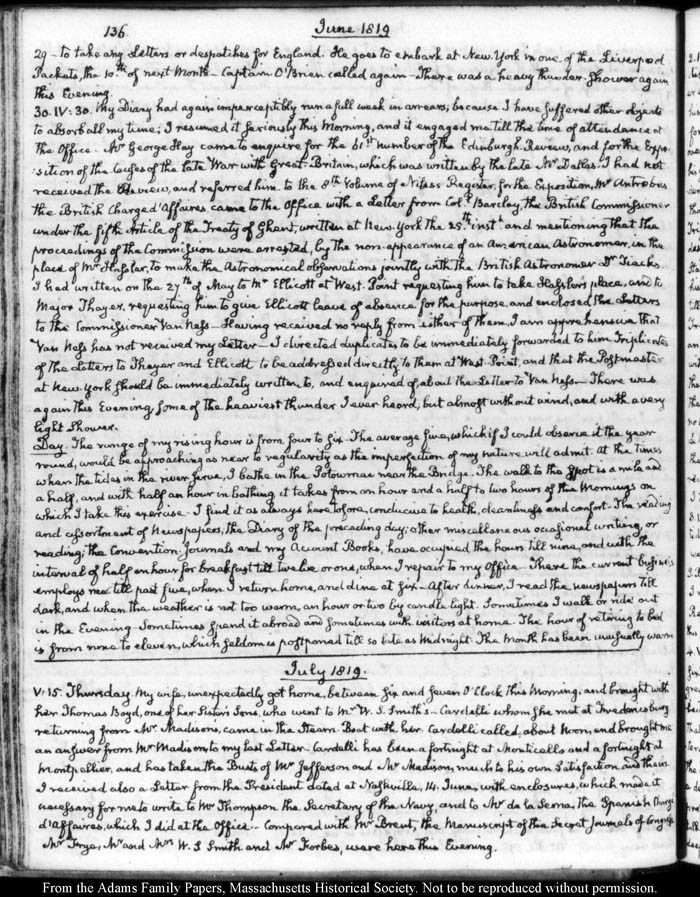 136
June 1819
29 - to take any Letters or despatches for England. He goes to embark at New York in one of the Liverpool
Packets, the 10th of next Month - Captain O'Brien called again - There was a heavy thunder-shower again
this Evening.
30. IV:30. My Diary had again imperceptibly run a full week in arrears, because I have suffered other objects
to absorb all my time; I resumed it seriously this Morning, and it engaged me till the time of attendance at
the Office. Mr George Hay came to enquire for the 61st number of the Edinburgh Review, and for the Expo-
sition of the Causes of the late War with Great-Britain, which was written by the late Mr Dallas. I had not
received the Review, and referred him to the 8th Volume of Niles's Register, for the Exposition. Mr Antrobus
the British Chargé d'Affaires came to the Office with a Letter from Coll Barclay, the British Commissioner
under the fifth Article of the Treaty of Ghent, written at New York the 25th inst and mentioning that the
proceedings of the Commission were arrested, by the non-appearance of an American Astronomer, in the
place of Mr Hassler, to make the Astronomical observations jointly with the British Astronomer Dr Tiarks.
I had written on the 27th of May to Mr Ellicott at West-Point requesting him to take Hassler's place, and to
Major Thayer, requesting him to give Ellicott leave of absence for the purpose, and enclosed the Letters
to the Commissioner Van Ness - Having received no reply from either of them, I am apprehensive that
Van Ness has not received my Letter - I directed duplicates to be immediately forwarded to him Triplicates
of the Letters to Thayer and Ellicott to be addressed directly to them at West-Point, and that the Postmaster
at New York should be immediately written to, and enquired of about the Letter to Van Ness - There was
again this Evening, some of the heaviest thunder I ever heard, but almost without wind, and with a very
light shower.
Day. The range of my rising hour is from four to six. The average five, which if I could observe it the year
round, would be approaching as near to regularity as the imperfection of my nature will admit. At the times
when the tides in the river serve, I bathe in the Potowmac near the Bridge. The walk to the spot is a mile and
a half, and with half an hour in bathing it takes from an hour and a half to two hours of the Mornings on
which I take this exercise. I find it as always heretofore, conducive to health, cleanliness and comfort. The reading
and assortment of Newspapers, the Diary of the preceding day, other miscellaneous occasional writing, or
reading, the Convention Journals and my Account Books, have occupied the hours till nine, and with the
interval of half an hour for breakfast till twelve or one, when I repair to my Office - There the current business
employs me till past five, when I return home, and dine at six - After dinner, I read the newspapers till
dark, and when the weather is not too warm, an hour or two by candle light. Sometimes I walk or ride out
in the Evening. Sometimes spend it abroad and sometimes with visitors at home. The hour of retiring to bed
is from nine to eleven, which seldom is postponed till so late as Midnight. The Month has been unusually warm
July 1819.
V:15. Thursday. My wife, unexpectedly got home, between six and seven O'Clock this Morning, and brought with
her Thomas Boyd, one of her Sister's Sons, who went to Mr W. S. Smith's - Cardelli whom she met at Fredericksburg
returning from Mr Madison's, came in the Steam Boat with her. Cardelli called, about Noon, and brought me
an answer from Mr Madison to my last Letter. Cardelli has been a fortnight at Monticello and a fortnight at
Montpellier, and has taken the Busts of Mr Jefferson and Mr Madison, much to his own Satisfaction and theirs.
I received also a Letter from the President dated at Nashville, 14. June, with enclosures, which made it
necessary for me to write to Mr Thompson the Secretary of the Navy, and to Mr de la Serna, the Spanish Chargé
d'affaires, which I did at the Office. - Compared with Mr Brent, the Manuscript of the Secret Journals of Congress
Mr Frye, Mr and Mrs W. S Smith and Mr Forbes, were here this Evening.
From the Adams Family Papers, Massachusetts Historical Society. Not to be reproduced without permission.